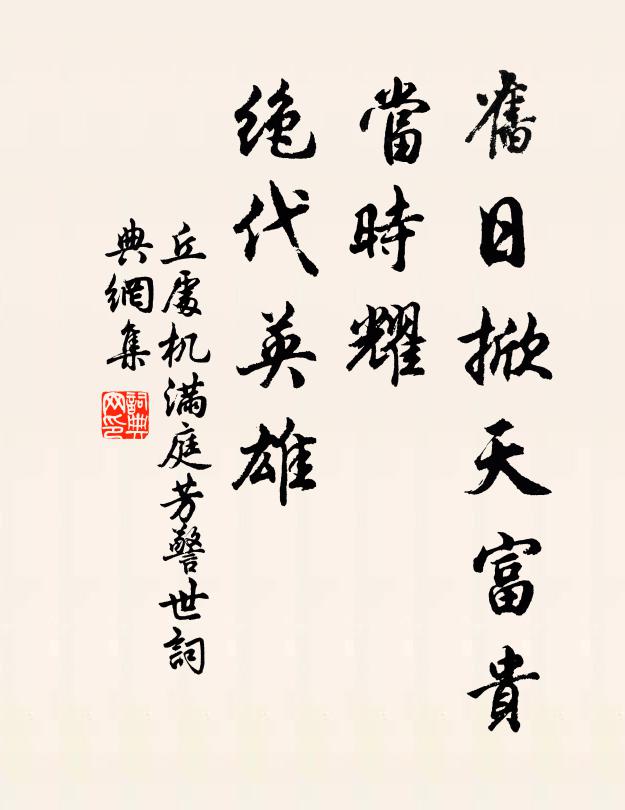 舊日掀天富貴
當時耀
絶代英雄
丘處机滿庭芳警世詞
典網集
詞典网印